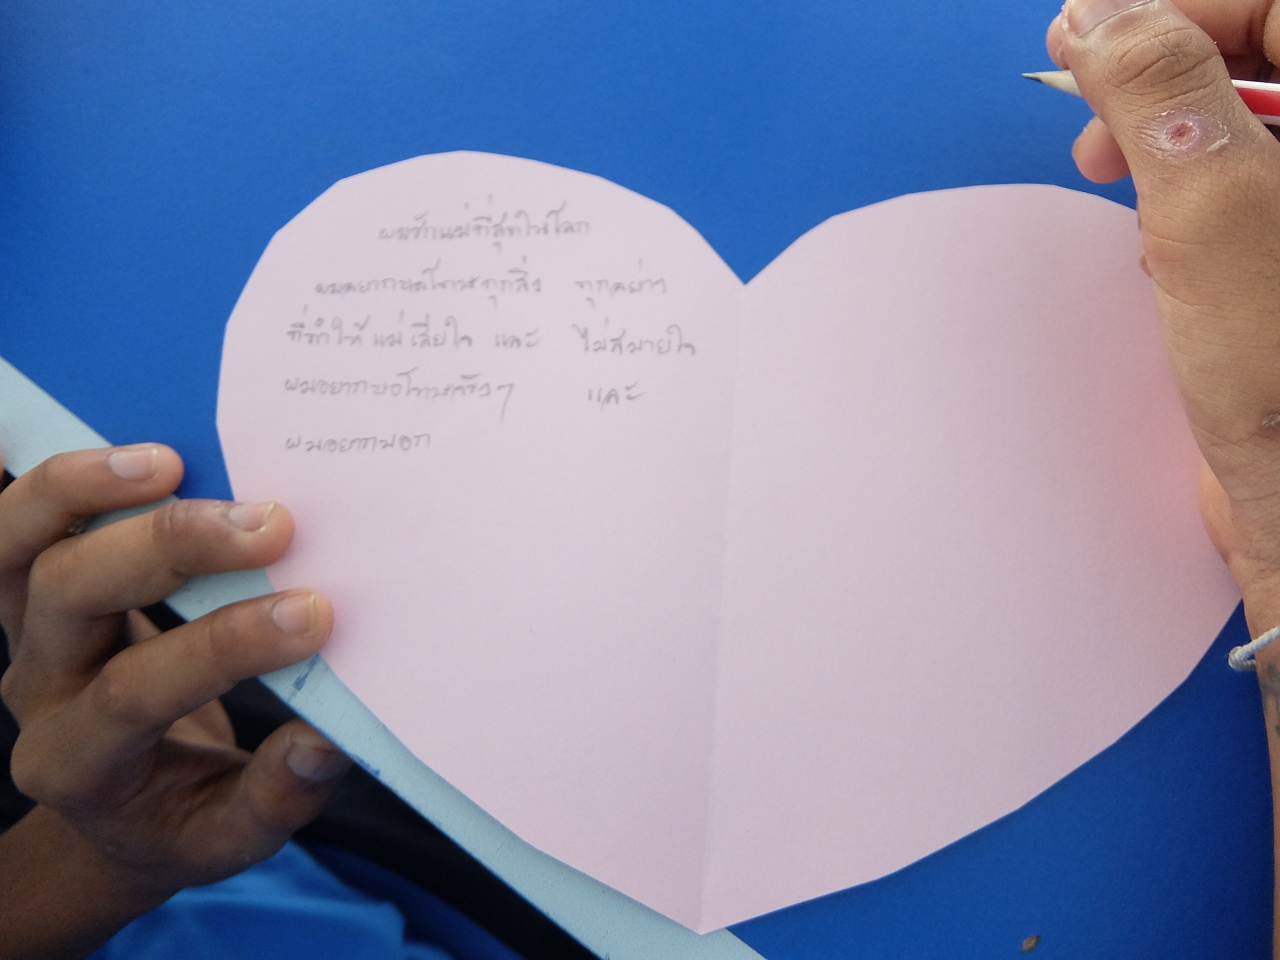 ผมรักแม่ที่สุดในโลก
ผมอยากขอโทษทุกสิ่ง ทุกอย่าง
ที่ทำให้ แม่ เสียใจ และ ไม่สบายใจ
ผมอยากขอโทษจริงๆ และ
ผมอยากบอก